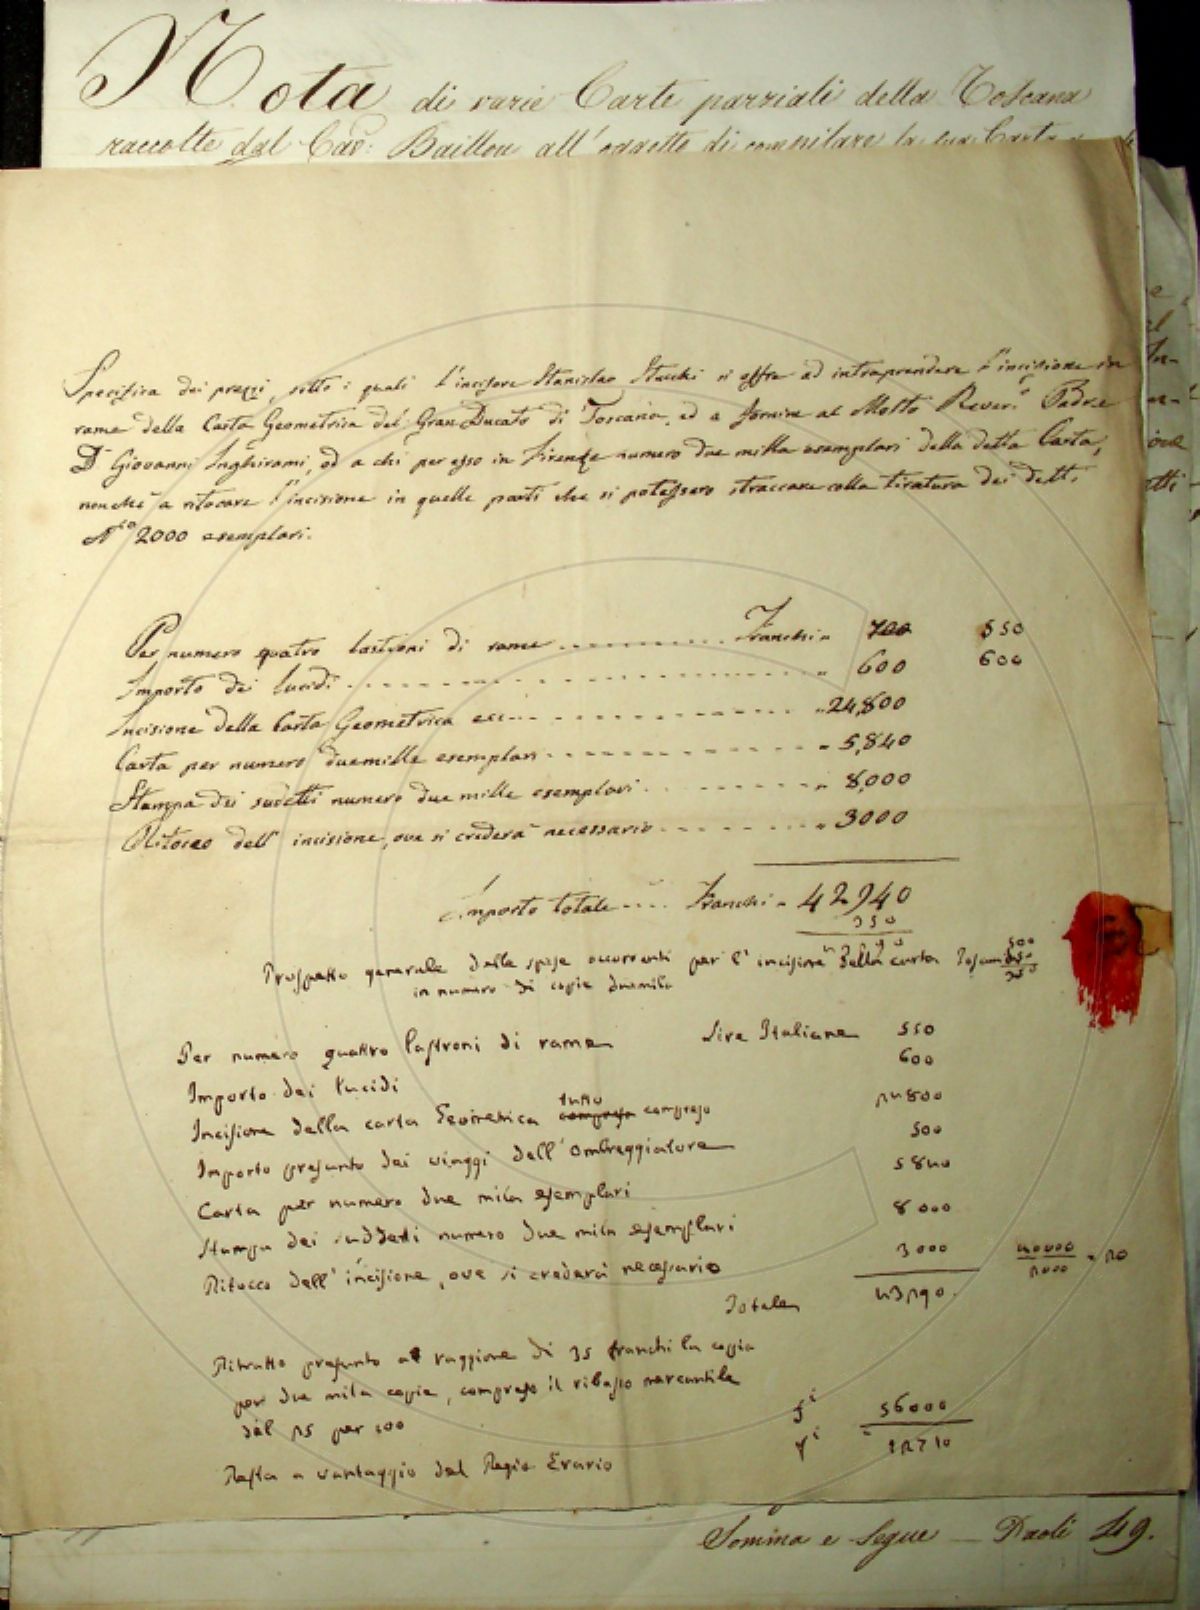 Nota di varie Carte parziali della Toscana
raccolte dal Cav: Baillou all'oggetto di compilare la sua Carta
Specifica dei prezzi, sotto i quali l'incisore Stanislao Stucchi si offre ad intraprendere l'incisione in
rame della Carta Geometrica del Gran Ducato di Toscana, ed a fornire al Molto Rever.o Padre
D. Giovanni Inghirami, od a chi per esso in Firenze numero due milla esemplari della detta Carta,
nonché a ritocare l'incisione in quelle parti che si potessero straccare colla tiratura dei detti
N.ro 2000 esemplari.
Per numero quatro lastroni di rame .......... Franchi " 700 550
Importo dei lucidi .......... " 600 600
Incisione della Carta Geometrica ecc .......... " 24,800
Carta per numero duemille esemplari .......... " 5,840
Stampa dei sudetti numero due mille esemplari .......... " 8,000
Ritocco dell'incisione, ove si crederà necessario .......... " 3000
Importo totale .... Franchi " 42940
350
Prospetto generale delle spese occorrenti per l'incisione della carta
in numero di copie duemila
Per numero quattro lastroni di rame Lire Italiane 550
Importo dei lucidi 600
Incisione della carta Geometrica tutto compreso 24800
Importo presunto dei viaggi dell'ombreggiatore 500
Carta per numero due mila esemplari 5840
Stampa dei suddetti numero due mila esemplari 8000
Ritocco dell'incisione, ove si crederà necessario 3000
40000 / 2000 = 20
Totale 43290.
Ritratto presunto a raggione di 35 franchi la copia
per due mila copie, compreso il ribasso mercantile
del 25 per 100 56000
Resta a vantaggio del Regio Erario 12710
Somma e Segue — Paoli 49.